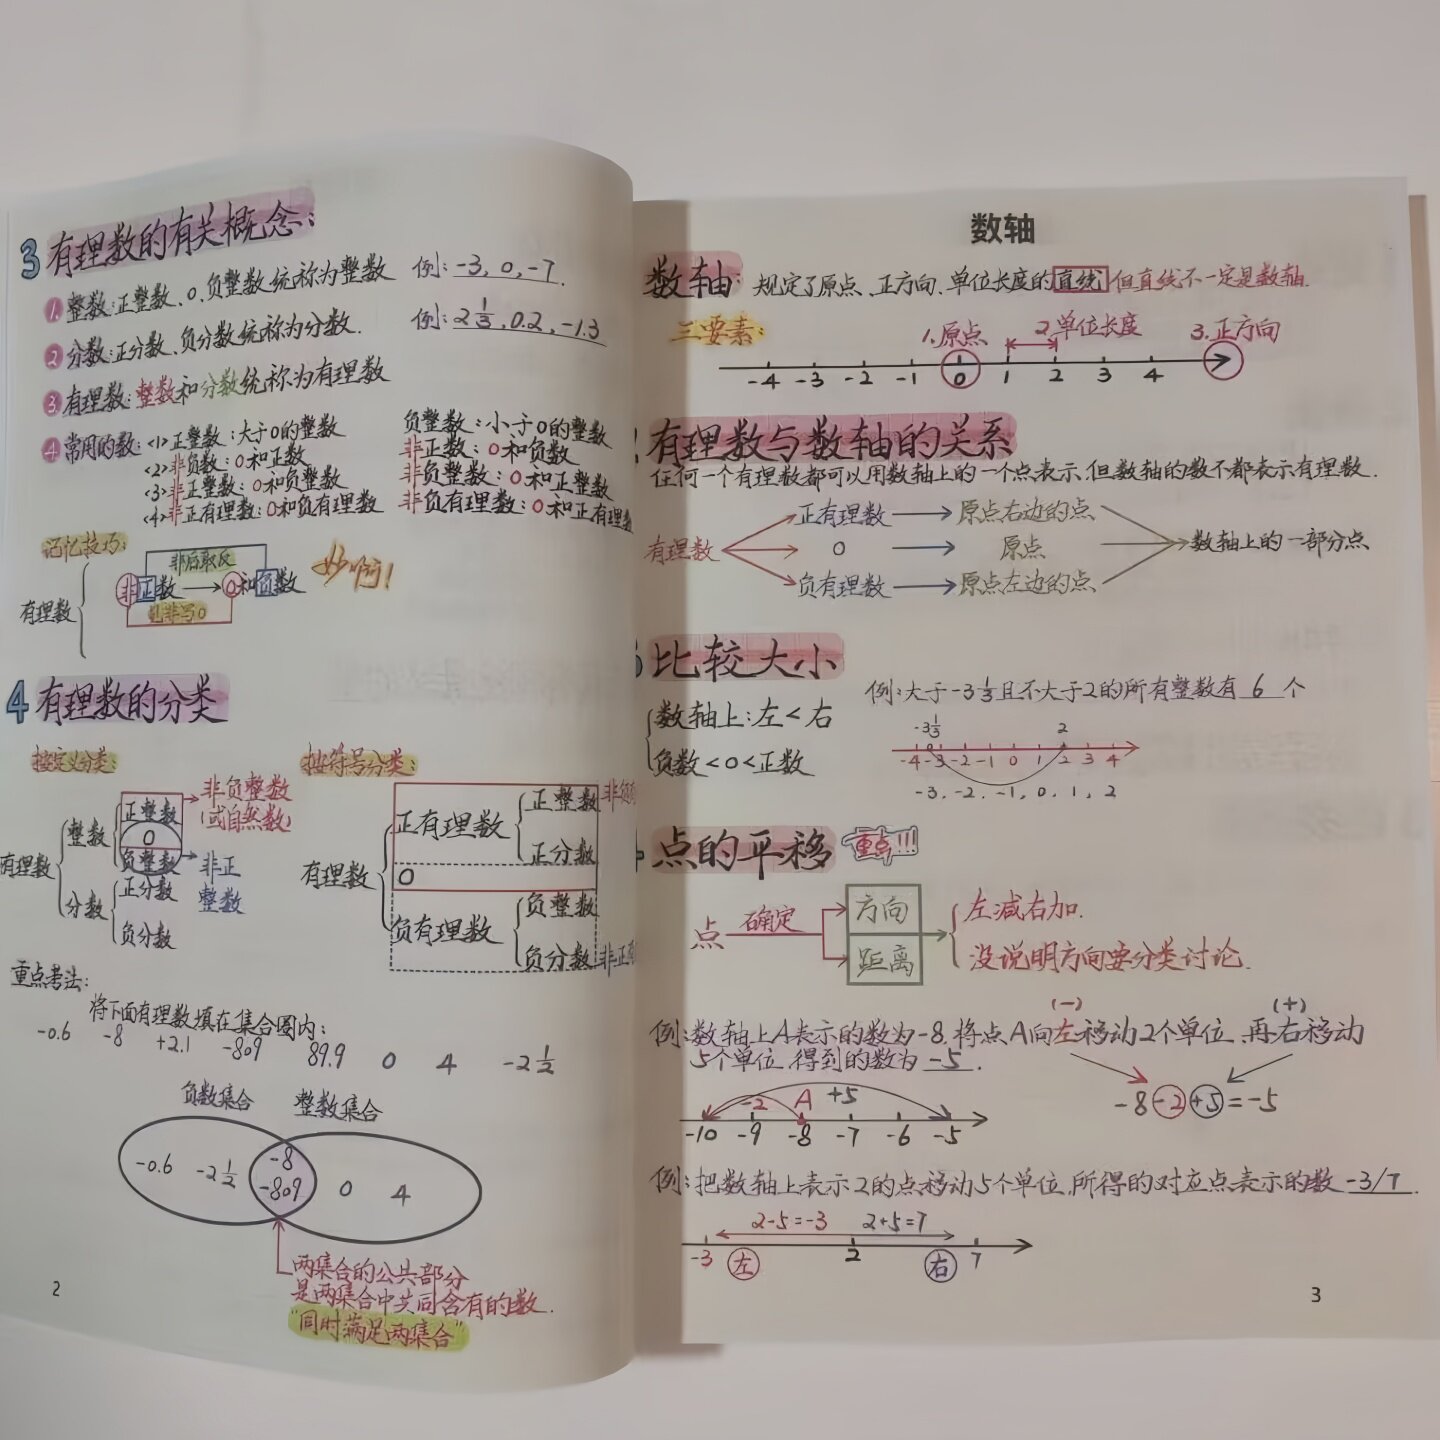 3 有理数的有关概念:
1. 整数:正整数、0、负整数统称为整数 例: -3, 0, -7.
2 分数:正分数、负分数统称为分数. 例: 2 1/3, 0.2, -1.3
3. 有理数:整数和分数统称为有理数
4 常用的数: <1>正整数:大于0的整数 负整数:小于0的整数
<2>非负数: 0和正数 非正数: 0和负数
<3>非正整数: 0和负整数 非负整数: 0和正整数
<4>非正有理数: 0和负有理数 非负有理数: 0和正有理数
记忆技巧:
非后取反
有理数 非正数 → 0和负数 妙啊!
见非写0
4 有理数的分类
按定义分类: 按符号分类:
有理数 整数 正整数 0 负整数
分数 正分数 负分数
非负整数
(或自然数)
非正
整数
有理数 正有理数 正整数 正分数
0
负有理数 负整数 负分数
重点考法:
将下面有理数填在集合圈内:
-0.6 -8 +2.1 -809 89.9 0 4 -2 1/2
负数集合 整数集合
-0.6 -2 1/2 -8 -809 0 4
两集合的公共部分
是两集合中共同含有的数.
"同时满足两集合"
2
数轴
数轴: 规定了原点、正方向、单位长度的直线 但直线不一定是数轴.
三要素: 1.原点 2.单位长度 3.正方向
-4 -3 -2 -1 0 1 2 3 4
有理数与数轴的关系
任何一个有理数都可以用数轴上的一个点表示,但数轴的数不都表示有理数.
正有理数 → 原点右边的点
有理数 0 → 原点 数轴上的一部分点
负有理数 → 原点左边的点
比较大小
例:大于-3 1/3且不大于2的所有整数有 6 个
数轴上:左<右
负数<0<正数
-3 1/3 2
-4 -3 -2 -1 0 1 2 3 4
-3, -2, -1, 0, 1, 2
点的平移 重点!!!
点 确定 方向 左减右加.
距离 没说明方向要分类讨论.
(-) (+)
例:数轴上A表示的数为-8.将点A向左移动2个单位,再右移动
5个单位,得到的数为 -5.
-8-2+5=-5
-2 A +5
-10 -9 -8 -7 -6 -5
例:把数轴上表示2的点移动5个单位,所得的对应点表示的数 -3/7.
2-5=-3 2+5=7
-3 左 2 右 7
3